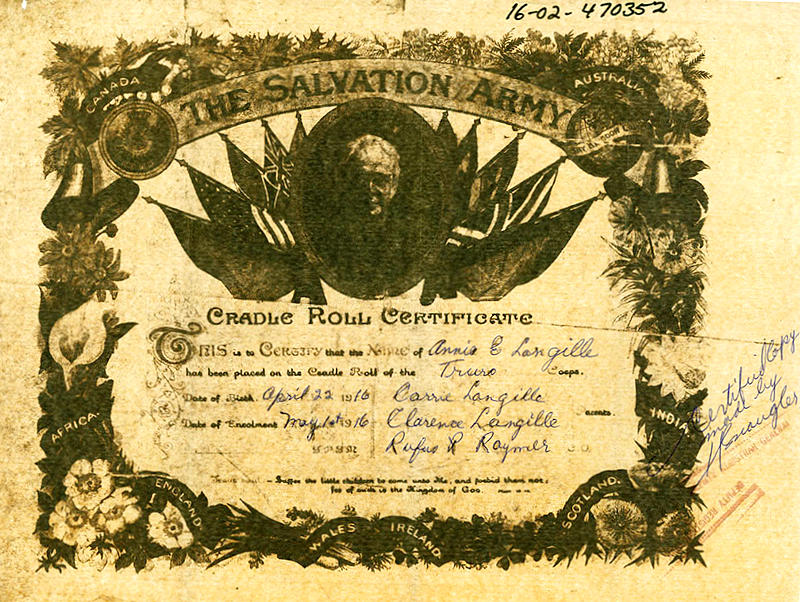 16-02-470352
CANADA
AUSTRALIA
THE SALVATION ARMY
CRADLE ROLL CERTIFICATE
THIS is to CERTIFY that the NAME of Annie E Langille
has been placed on the Cradle Roll of the Truro Corps.
Date of Birth April 22 1916 Carrie Langille
Date of Enrolment May 1st 1916 Clarence Langille Parents.
Rufus R Raymer C.O.
Suffer the little children to come unto Me, and forbid them not;
for of such is the Kingdom of God.
AFRICA
INDIA
ENGLAND
SCOTLAND
WALES
IRELAND
Certified Copy
made by